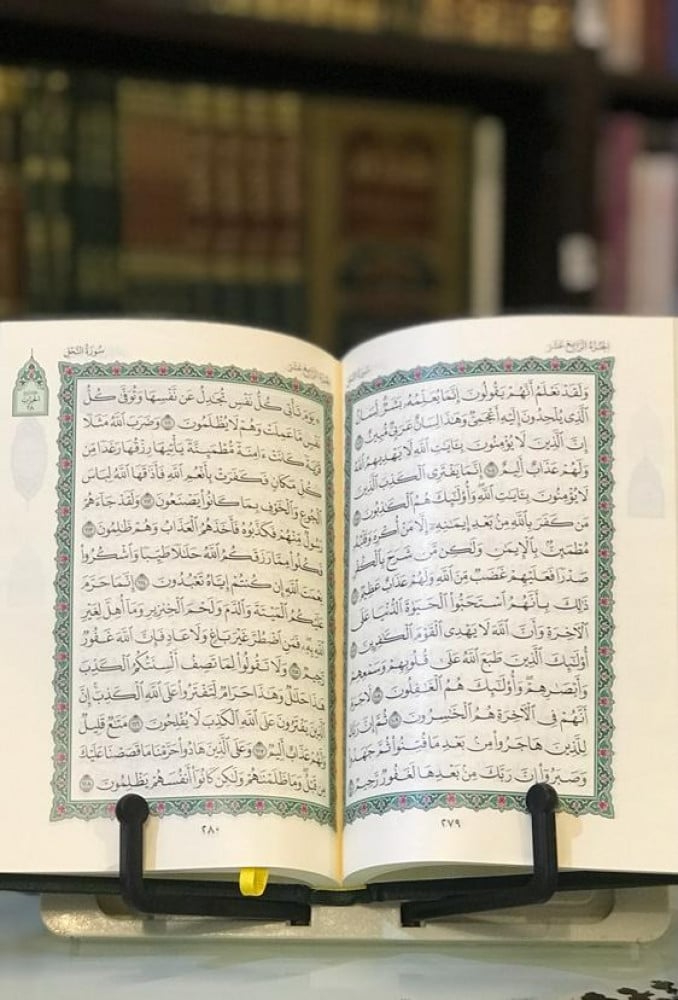 الجزء الرابع عشر
وَلَقَدْ نَعْلَمُ أَنَّهُمْ يَقُولُونَ إِنَّمَا يُعَلِّمُهُۥ بَشَرٌ لِّسَانُ
ٱلَّذِى يُلْحِدُونَ إِلَيْهِ أَعْجَمِىٌّ وَهَٰذَا لِسَانٌ عَرَبِىٌّ مُّبِينٌ ١٠٣
إِنَّ ٱلَّذِينَ لَا يُؤْمِنُونَ بِـَٔايَٰتِ ٱللَّهِ لَا يَهْدِيهِمُ ٱللَّهُ
وَلَهُمْ عَذَابٌ أَلِيمٌ ١٠٤ إِنَّمَا يَفْتَرِى ٱلْكَذِبَ ٱلَّذِينَ
لَا يُؤْمِنُونَ بِـَٔايَٰتِ ٱللَّهِ وَأُو۟لَٰٓئِكَ هُمُ ٱلْكَٰذِبُونَ ١٠٥
مَن كَفَرَ بِٱللَّهِ مِنۢ بَعْدِ إِيمَٰنِهِۦٓ إِلَّا مَنْ أُكْرِهَ وَقَلْبُهُۥ
مُطْمَئِنٌّۢ بِٱلْإِيمَٰنِ وَلَٰكِن مَّن شَرَحَ بِٱلْكُفْرِ
صَدْرًا فَعَلَيْهِمْ غَضَبٌ مِّنَ ٱللَّهِ وَلَهُمْ عَذَابٌ عَظِيمٌ ١٠٦
ذَٰلِكَ بِأَنَّهُمُ ٱسْتَحَبُّوا۟ ٱلْحَيَوٰةَ ٱلدُّنْيَا عَلَى
ٱلْـَٔاخِرَةِ وَأَنَّ ٱللَّهَ لَا يَهْدِى ٱلْقَوْمَ ٱلْكَٰفِرِينَ ١٠٧
أُو۟لَٰٓئِكَ ٱلَّذِينَ طَبَعَ ٱللَّهُ عَلَىٰ قُلُوبِهِمْ وَسَمْعِهِمْ
وَأَبْصَٰرِهِمْ وَأُو۟لَٰٓئِكَ هُمُ ٱلْغَٰفِلُونَ ١٠٨ لَا جَرَمَ
أَنَّهُمْ فِى ٱلْـَٔاخِرَةِ هُمُ ٱلْخَٰسِرُونَ ١٠٩ ثُمَّ إِنَّ رَبَّكَ
لِلَّذِينَ هَاجَرُوا۟ مِنۢ بَعْدِ مَا فُتِنُوا۟ ثُمَّ جَٰهَدُوا۟
وَصَبَرُوٓا۟ إِنَّ رَبَّكَ مِنۢ بَعْدِهَا لَغَفُورٌ رَّحِيمٌ ١١٠
٢٧٩
سُورَةُ النَّحْلِ
الحزب
٢٨
يَوْمَ تَأْتِى كُلُّ نَفْسٍ تُجَٰدِلُ عَن نَّفْسِهَا وَتُوَفَّىٰ كُلُّ
نَفْسٍ مَّا عَمِلَتْ وَهُمْ لَا يُظْلَمُونَ ١١١ وَضَرَبَ ٱللَّهُ مَثَلًا
قَرْيَةً كَانَتْ ءَامِنَةً مُّطْمَئِنَّةً يَأْتِيهَا رِزْقُهَا رَغَدًا مِّن
كُلِّ مَكَانٍ فَكَفَرَتْ بِأَنْعُمِ ٱللَّهِ فَأَذَٰقَهَا ٱللَّهُ لِبَاسَ
ٱلْجُوعِ وَٱلْخَوْفِ بِمَا كَانُوا۟ يَصْنَعُونَ ١١٢ وَلَقَدْ جَآءَهُمْ
رَسُولٌ مِّنْهُمْ فَكَذَّبُوهُ فَأَخَذَهُمُ ٱلْعَذَابُ وَهُمْ ظَٰلِمُونَ ١١٣
فَكُلُوا۟ مِمَّا رَزَقَكُمُ ٱللَّهُ حَلَٰلًا طَيِّبًا وَٱشْكُرُوا۟
نِعْمَتَ ٱللَّهِ إِن كُنتُمْ إِيَّاهُ تَعْبُدُونَ ١١٤ إِنَّمَا حَرَّمَ
عَلَيْكُمُ ٱلْمَيْتَةَ وَٱلدَّمَ وَلَحْمَ ٱلْخِنزِيرِ وَمَآ أُهِلَّ لِغَيْرِ
ٱللَّهِ بِهِۦ فَمَنِ ٱضْطُرَّ غَيْرَ بَاغٍ وَلَا عَادٍ فَإِنَّ ٱللَّهَ غَفُورٌ
رَّحِيمٌ ١١٥ وَلَا تَقُولُوا۟ لِمَا تَصِفُ أَلْسِنَتُكُمُ ٱلْكَذِبَ
هَٰذَا حَلَٰلٌ وَهَٰذَا حَرَامٌ لِّتَفْتَرُوا۟ عَلَى ٱللَّهِ ٱلْكَذِبَ إِنَّ
ٱلَّذِينَ يَفْتَرُونَ عَلَى ٱللَّهِ ٱلْكَذِبَ لَا يُفْلِحُونَ ١١٦ مَتَٰعٌ قَلِيلٌ
وَلَهُمْ عَذَابٌ أَلِيمٌ ١١٧ وَعَلَى ٱلَّذِينَ هَادُوا۟ حَرَّمْنَا مَا قَصَصْنَا عَلَيْكَ
مِن قَبْلُ وَمَا ظَلَمْنَٰهُمْ وَلَٰكِن كَانُوٓا۟ أَنفُسَهُمْ يَظْلِمُونَ ١١٨
٢٨٠